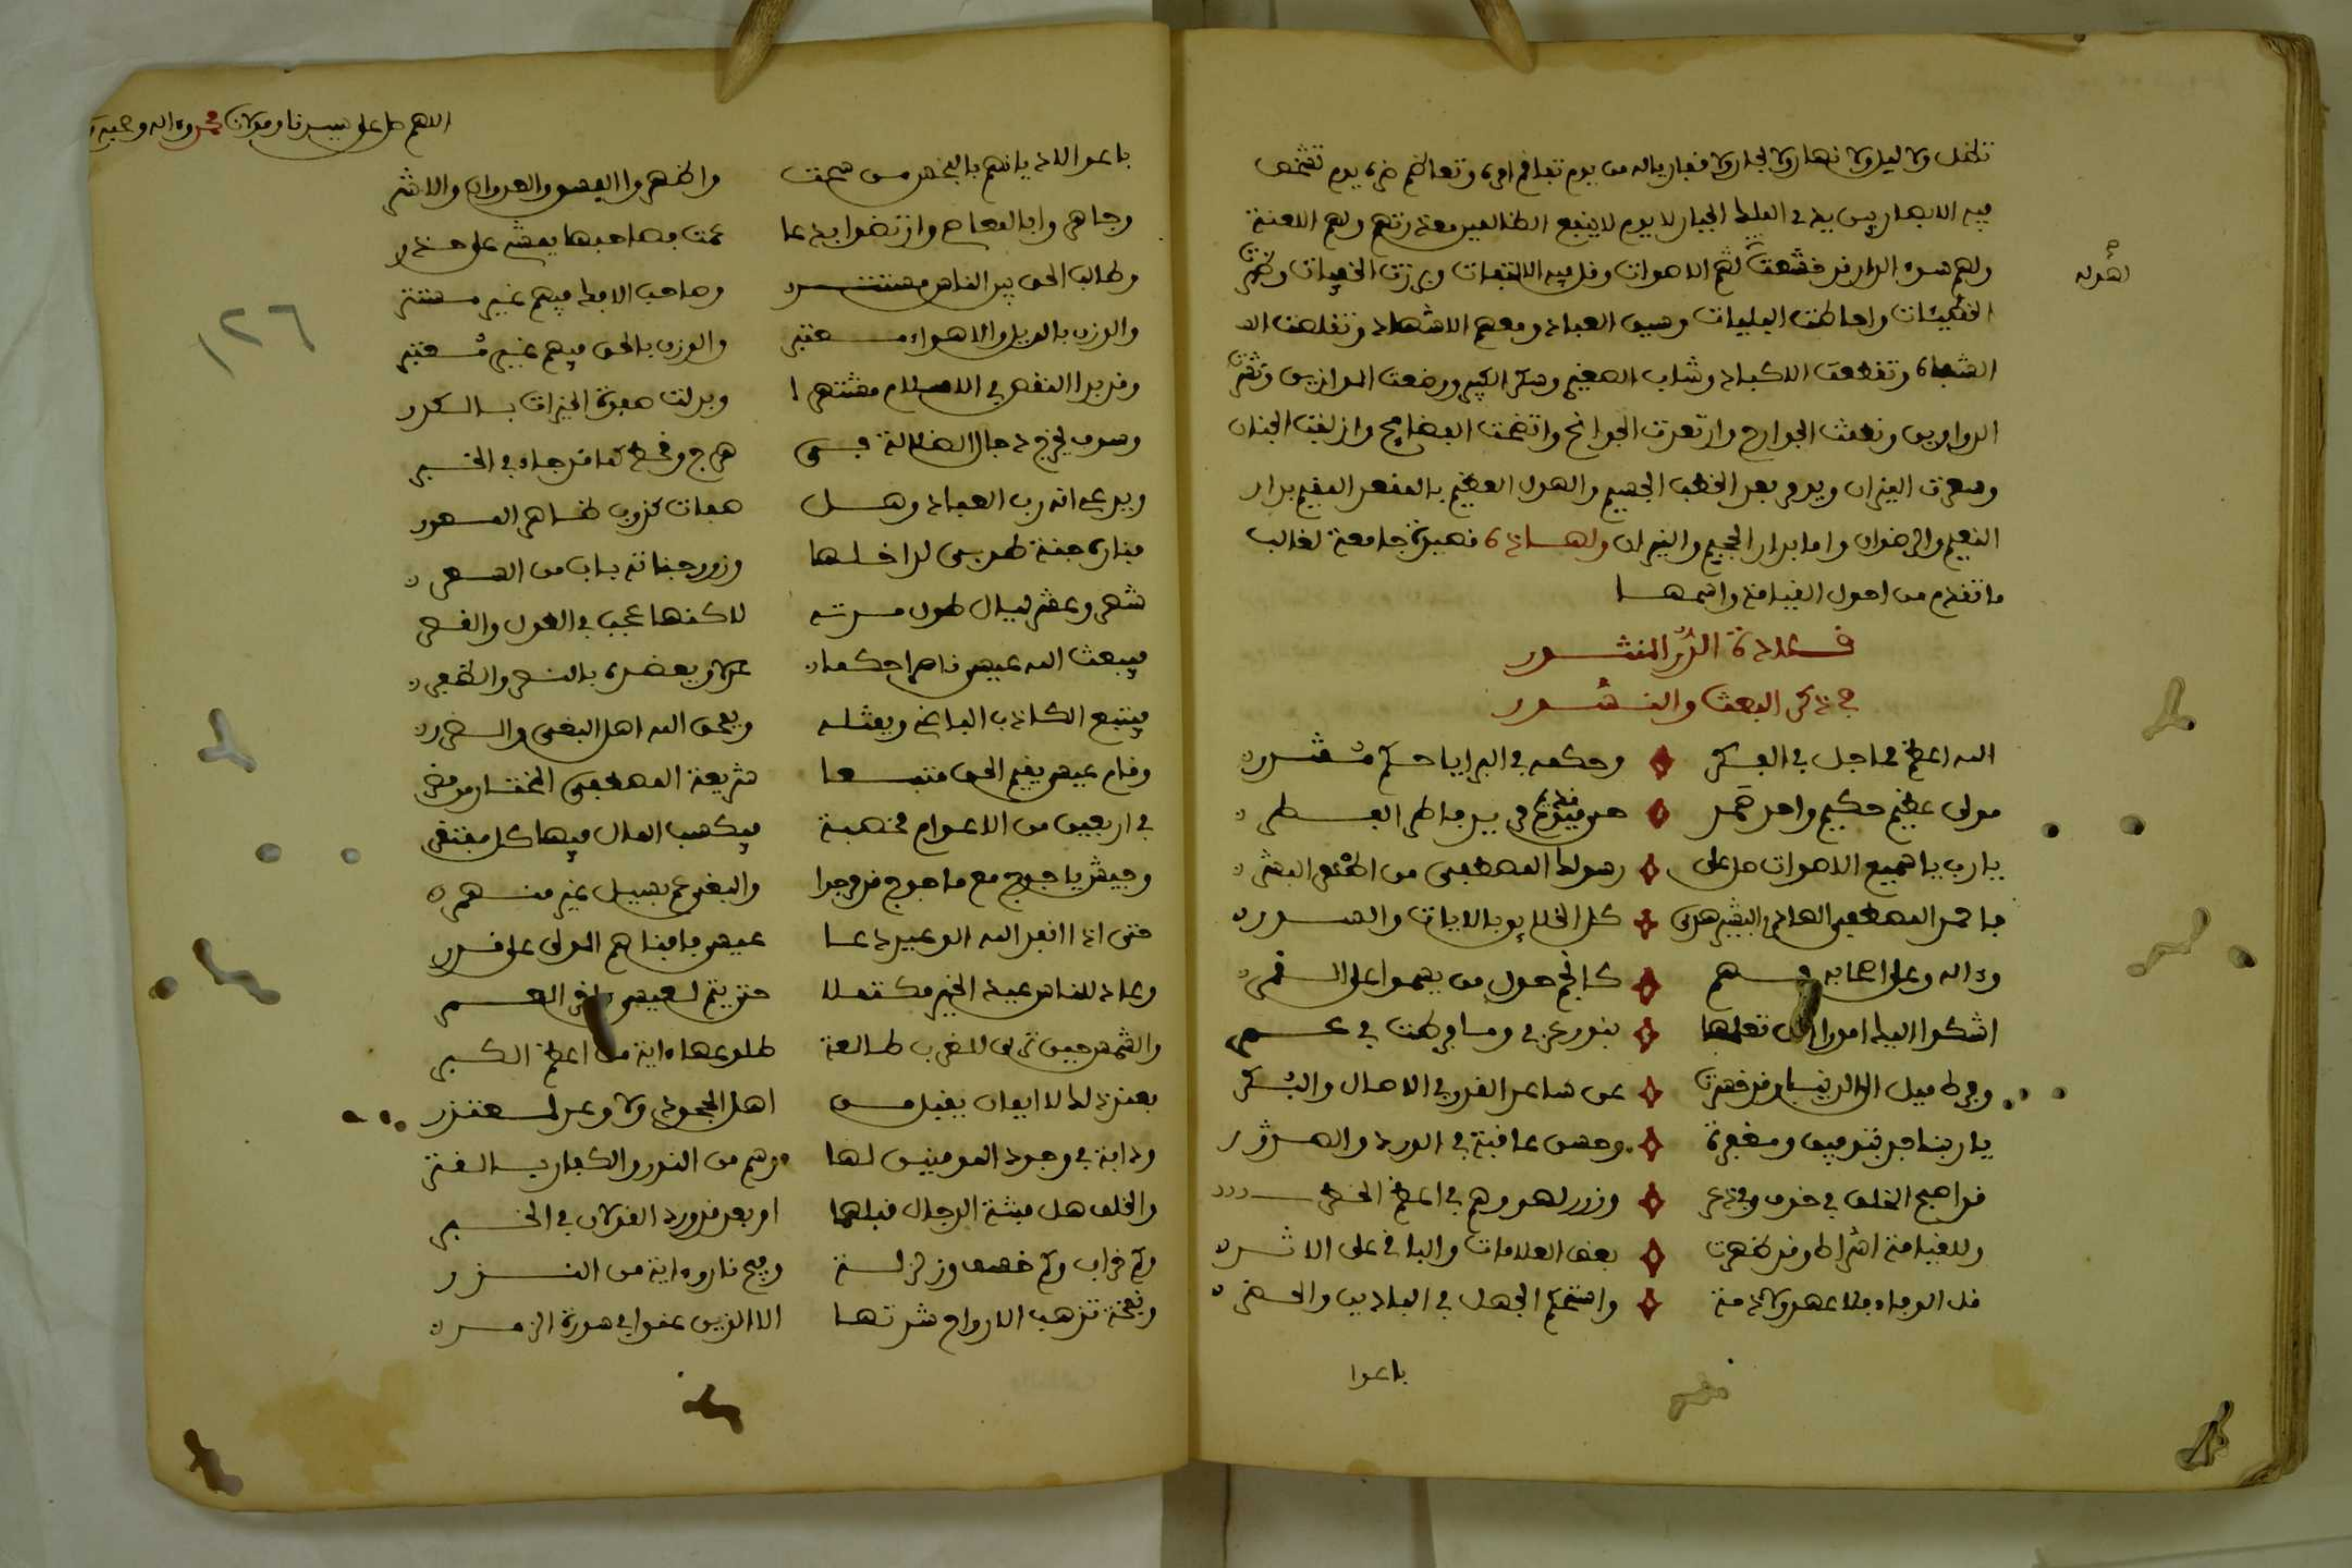 تظل ولا ليل ولا نهار ولا بحار ولا قفار ياله من يوم تفاقم امره وتعاظم ضره يوم تشخص
فيه الابصار بين يدي الملك الجبار لا يوم لا ينفع الظالمين معذرتهم ولهم اللعنة
ولهم سوء الدار قد خشعت لهوله
ثم الاصوات وقل فيه الالتفات وبرزت الخفيات وظهرت
الخطيئات واحاطت البليات وسيق العباد ومعهم الاشهاد وتقلصت
الشفاه وتقطعت الاكباد وشاب الصغير وسكر الكبير ووضعت الموازين ونشرت
الدواوين ونطقت الجوارح وارتعدت الجوانح واتضحت الفضايح وازلفت الجنان
وسعرت النيران ويرى بعد الخطب الجسيم والهول العظيم بالمقعد المقيم بدار
النعيم والرضوان واما بدار الجحيم والنيران ولهاذه قصيدة جامعة لغالب
ما تقدم من اهول القيامة واسمها
قلادة الدر المنثور
في ذكر البعث والنشور
الله اعظم مما جال في الفكر وحكمه في البرايا حكم مقتدر
مولى عظيم حكيم واحد صمد حي قديم مريد فاطر الفطر
يا رب يا سميع الاصوات صل على رسولك المصطفى من اطهر البشر
محمد المصطفى الهادي البشير هدى كل الخلايق بالايات والسور
واله وعلى اصحابه فهم كانجم حول من يسموا على القمر
اشكوا اليك امورا انت تعلمها فتور عزمي وما فرطت في عمر
وفرط ميل الى الدنيا وقد قصرت عن ساعد الغدر في الاصال والبكر
يا ربنا جد بتوفيق ومغفرة وحسن عاقبة في الورد والصدر
قد اصبح الخلق في خوف وفي ذعر وزور لهو وهم في اعظم الخطر
وللقيامة اشراط وقد ظهرت بعض العلامات والباقي على الاثر
قل الوفاء فلا عهد ولا ذمة واستحكم الجهل في البادين والحضر
باعوا
اللهم صل على سيدنا ومولانا محمد واله وصحبه
١٢٦
باعوا الاديانهم بالبخس من سحت واظهروا الفسق والعدوان والاشر
وجاهروا بالمعاصي وارتضوا بدعا عمت فصاحبها يمشي على حذر
وطالب الحق بين الناس مستتر وصاحب الافك فيهم غير مستتر
والوزن بالويل والاهواء معتبر والوزن بالحق فيهم غير معتبر
وقد بدا النقص في الاسلام مشتهرا وبدلت صفوة الخيرات بالكدر
وسوف يخرج دجال الضلالة في هرج وقحط كما قد جاء في الخبر
ويدعي انه رب العباد وهل صفات كذوب ظاهر العور
فناره جنة طوبى لداخلها وزور جناته باب من السعر
شهر وعشر ليال طول مدته لاكنها عجب في الطول والقصر
فيبعث الله عيسى ناصرا حكما عدلا ويعضده بالنصر والظفر
فيتبع الكاذب الباغي ويقتله ويمحق الله اهل البغي والضرر
وقام عيسى يقيم الحق متبعا شريعة المصطفى المختار من مضر
في اربعين من الاعوام مخصبة فيكسب المال فيها كل مفتقر
وجيش ياجوج مع ماجوج قد وجدا والبغي عم بسيل غير منهمر
حتى اذا انفذ الله الوعيد دعا عيسى فافناهم المولى على قدر
وعاد للناس عيد الخير مكتملا حتى يتم لعيسى اخر العمر
والشمس حين ترى للغرب طالعة طلوعها ءاية من اعظم الكبر
بعد ذلك لا ايمان يقبل من اهل الجحود ولا وعد لمعتذر
ودابة في وجوه المومنين لها وهم من النور والكفار بالقتر
والخلف هل فتنة الدجال قبلهما او بعد قد ورد القولان في الخبر
وكم خراب وكم خسف وزلزلة وفيح نار وءاية من النذر
ونفخة تذهب الارواح شدتها الا الذين عنوا في سورة الزمر